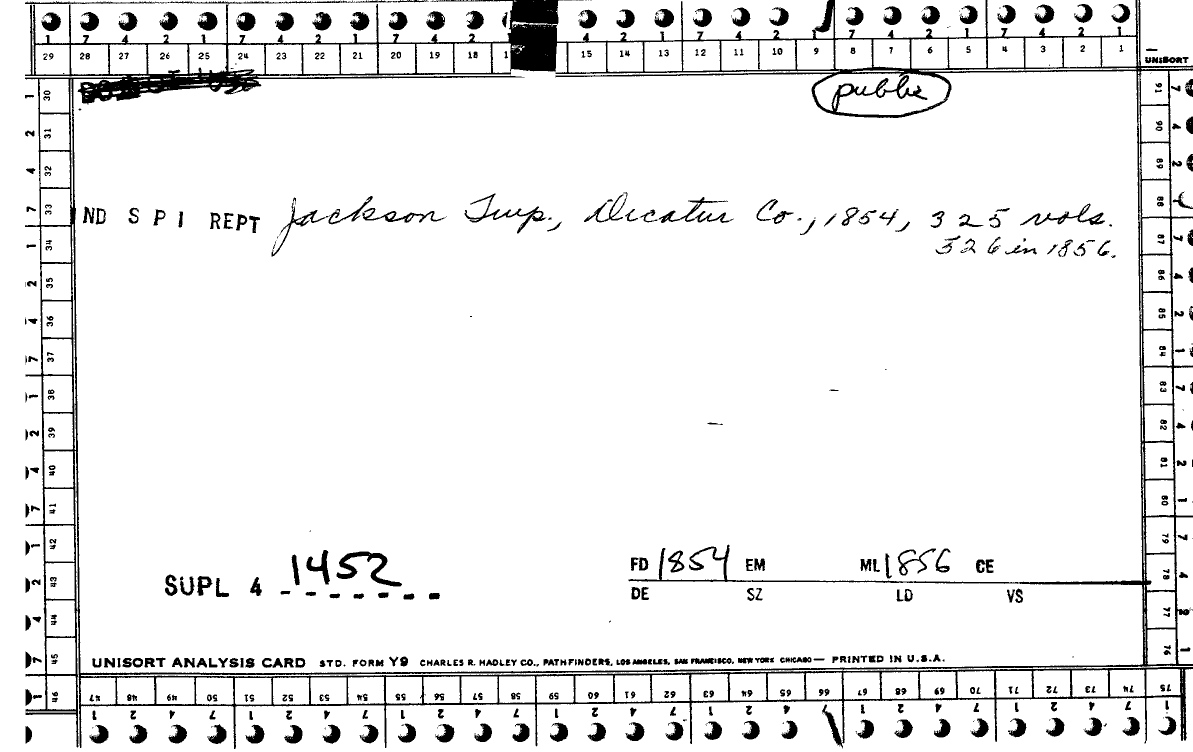 1 7 4 2 1 7 4 2 1 7 4 2 1 4 2 1 7 4 2 1 7 4 2 1 7 4 2 1
29 28 27 26 25 24 23 22 21 20 19 18 15 14 13 12 11 10 9 8 7 6 5 4 3 2 1
UNISORT
public
IND S P I REPT Jackson Twp., Decatur Co., 1854, 325 vols.
326 in 1856.
SUPL 4 1452
FD 1854 EM ML 1856 CE
DE SZ LD VS
UNISORT ANALYSIS CARD STD. FORM Y9 CHARLES R. HADLEY CO., PATHFINDERS, LOS ANGELES, SAN FRANCISCO, NEW YORK CHICAGO — PRINTED IN U.S.A.
30 31 32 33 34 35 36 37 38 39 40 41 42 43 44 45 46
47 48 49 50 51 52 53 54 55 56 57 58 59 60 61 62 63 64 65 66 67 68 69 70 71 72 73 74 75
91 90 89 88 87 86 85 84 83 82 81 80 79 78 77 76